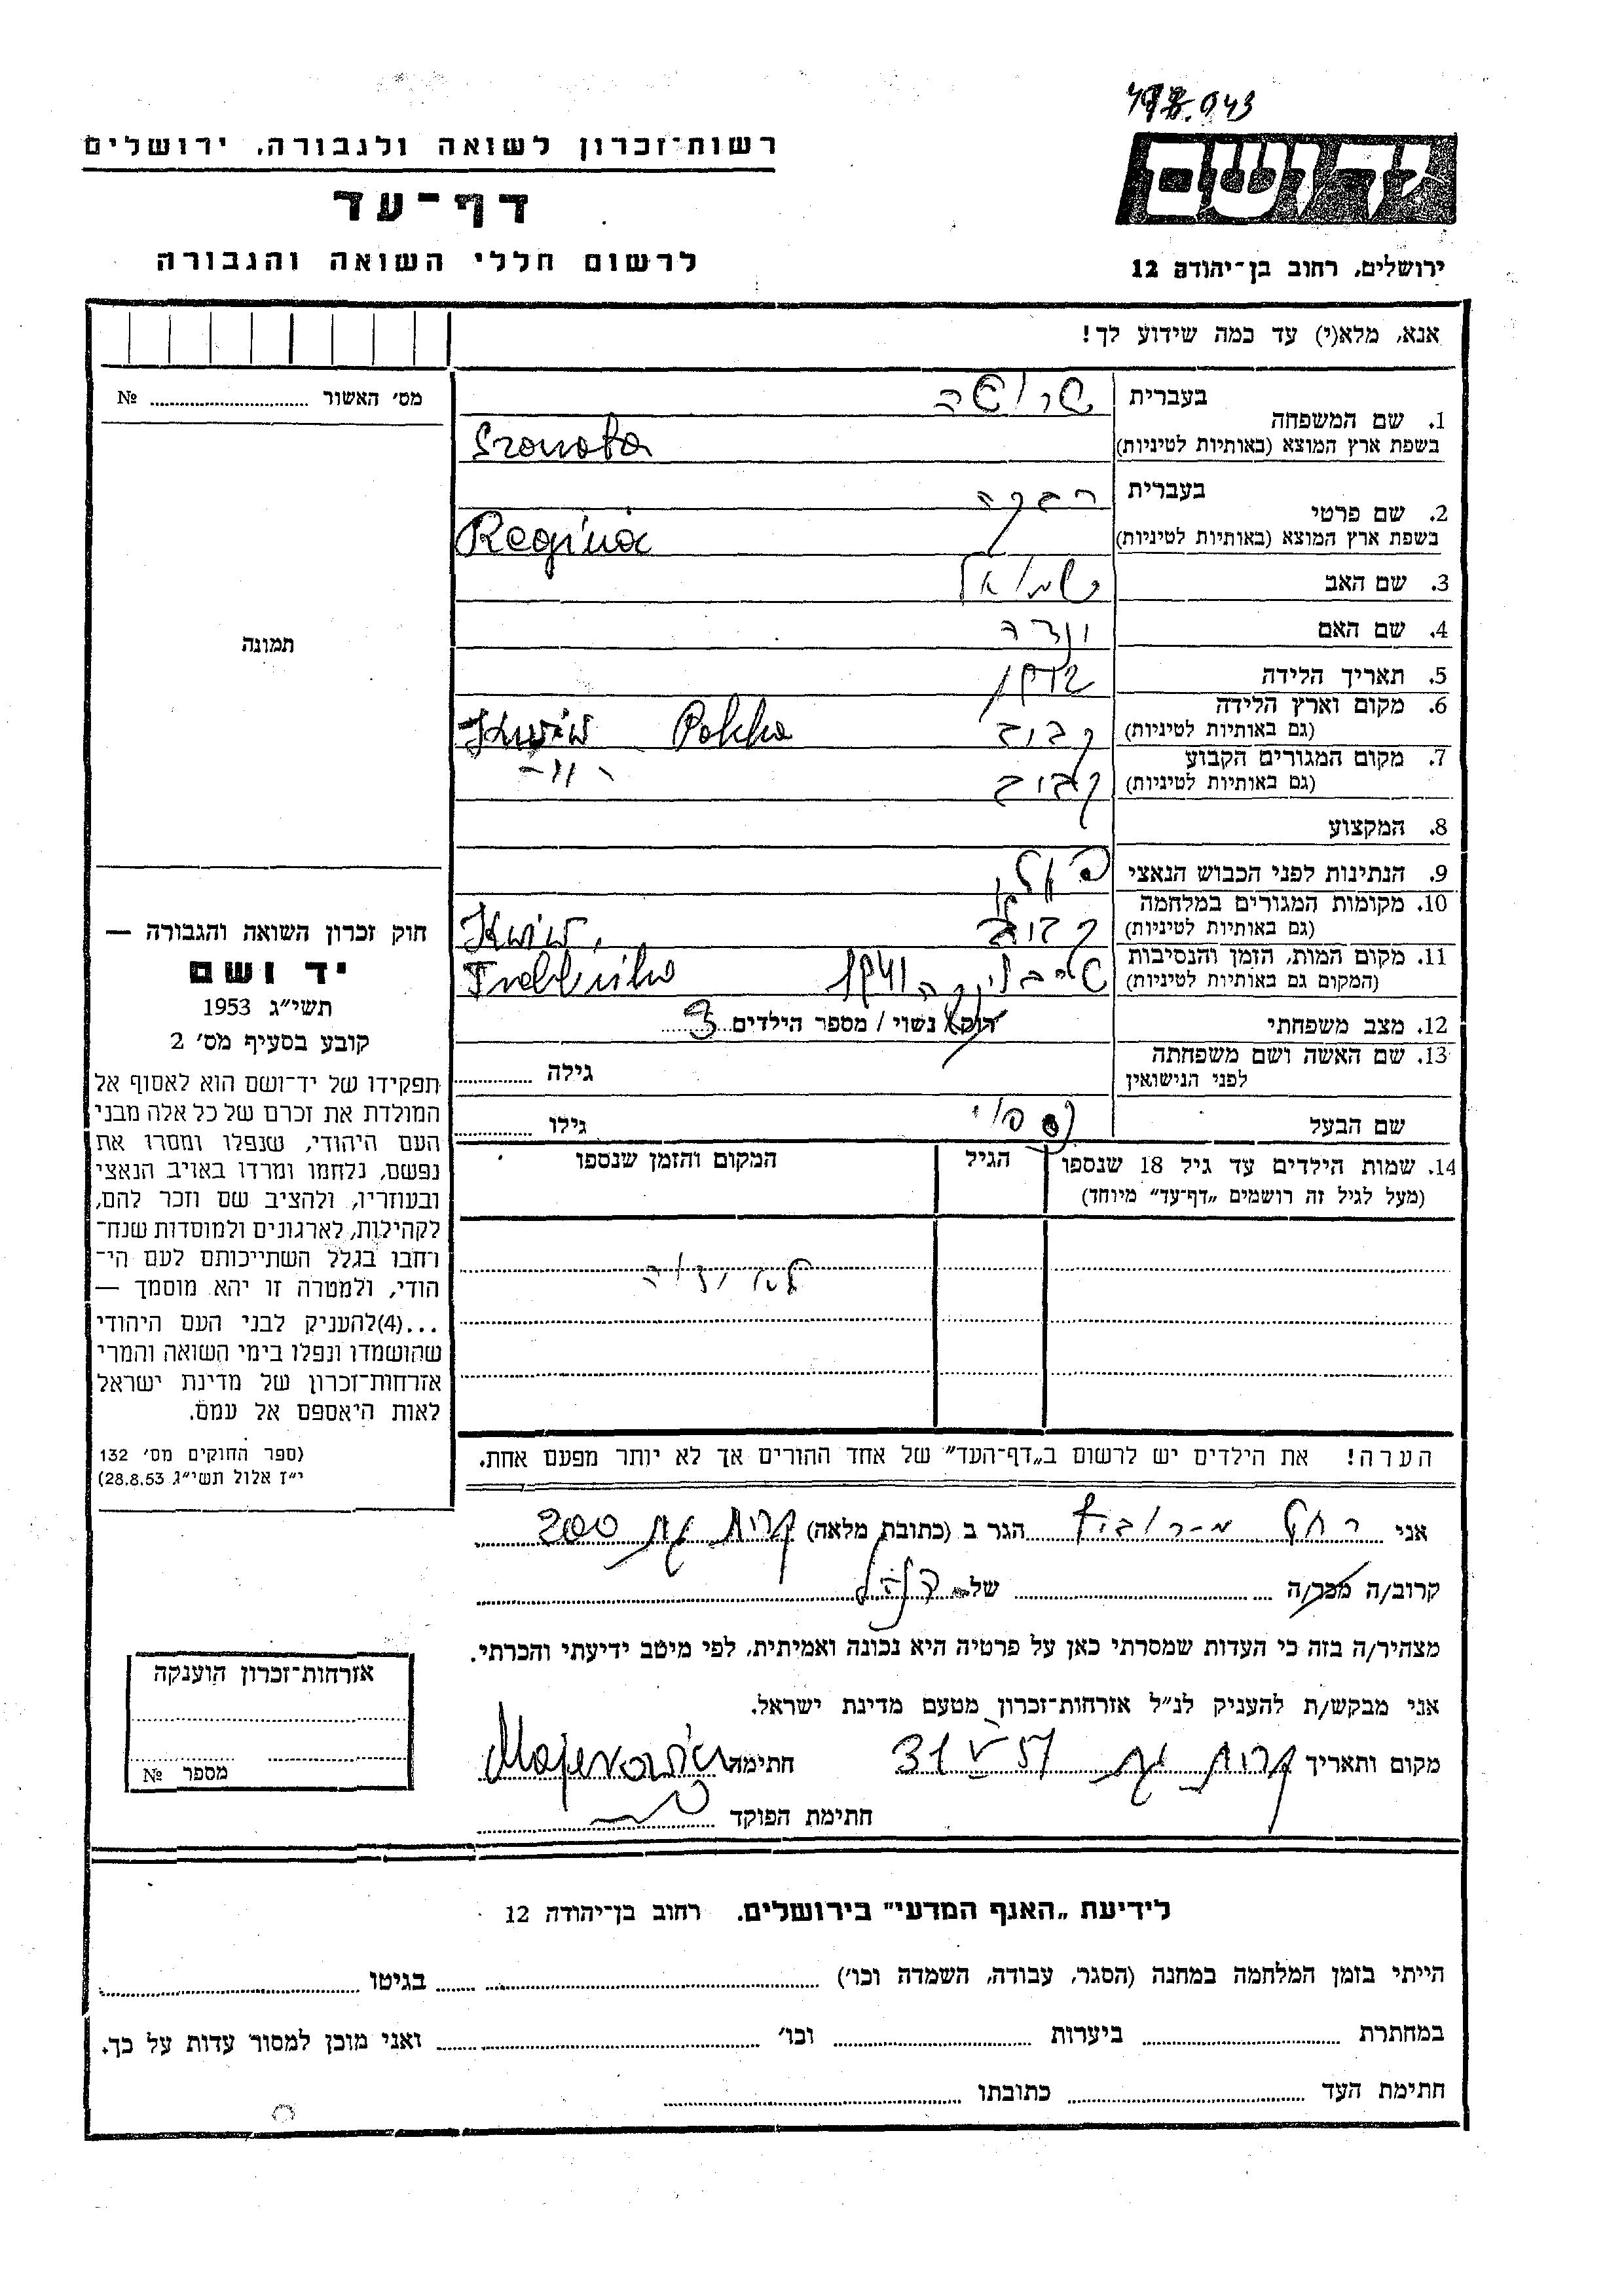 רשות־זכרון לשואה ולגבורה, ירושלים
דף־עד
לרשום חללי השואה והגבורה
יד ושם
ירושלים, רחוב בן־יהודה 12
אנא, מלא(י) עד כמה שידוע לך!
מס' האשור № 
1. שם המשפחה
בעברית
בשפת ארץ המוצא (באותיות לטיניות)
2. שם פרטי
בעברית רבקה
בשפת ארץ המוצא (באותיות לטיניות) Regina
3. שם האב שמואל
4. שם האם
5. תאריך הלידה
6. מקום וארץ הלידה
(גם באותיות לטיניות) Polska
7. מקום המגורים הקבוע
(גם באותיות לטיניות) -"-
8. המקצוע
9. הנתינות לפני הכבוש הנאצי
10. מקומות המגורים במלחמה
(גם באותיות לטיניות)
11. מקום המות, הזמן והנסיבות
(המקום גם באותיות לטיניות) טרבלינקה Treblinka
12. מצב משפחתי רוק/ נשוי / מספר הילדים 3
13. שם האשה ושם משפחתה
לפני הנישואין גילה
שם הבעל גילו
14. שמות הילדים עד גיל 18 שנספו
(מעל לגיל זה רושמים „דף־עד” מיוחד)
הגיל
המקום והזמן שנספו
לא ידוע
הערה! את הילדים יש לרשום ב„דף־העד” של אחד ההורים אך לא יותר מפעם אחת.
תמונה
חוק זכרון השואה והגבורה —
יד ושם
תשי"ג 1953
קובע בסעיף מס' 2
תפקידו של יד־ושם הוא לאסוף אל
המולדת את זכרם של כל אלה מבני
העם היהודי, שנפלו ומסרו את
נפשם, נלחמו ומרדו באויב הנאצי
ובעוזריו, ולהציב שם וזכר להם,
לקהילות, לארגונים ולמוסדות שנח־
רחבו בגלל השתייכותם לעם הי־
הודי, ולמטרה זו יהא מוסמך —
...(4)להעניק לבני העם היהודי
שהושמדו ונפלו בימי השואה והמרי
אזרחות־זכרון של מדינת ישראל
לאות היאספם אל עמם.
(ספר החוקים מס' 132
י"ז אלול תשי"ג 28.8.53)
אני רחל הגר ב (כתובת מלאה) קרית גת 200
קרוב/ה מכר/ה של הנ"ל
מצהיר/ה בזה כי העדות שמסרתי כאן על פרטיה היא נכונה ואמיתית, לפי מיטב ידיעתי והכרתי.
אני מבקש/ת להעניק לנ"ל אזרחות־זכרון מטעם מדינת ישראל.
מקום ותאריך קרית גת 31 V 57 חתימה
חתימת הפוקד
אזרחות־זכרון הוענקה
מספר №
לידיעת „האגף המדעי” בירושלים, רחוב בן־יהודה 12
הייתי בזמן המלחמה במחנה (הסגר, עבודה, השמדה וכו') בגיטו
במחתרת ביערות וכו' ואני מוכן למסור עדות על כך.
חתימת העד כתובתו